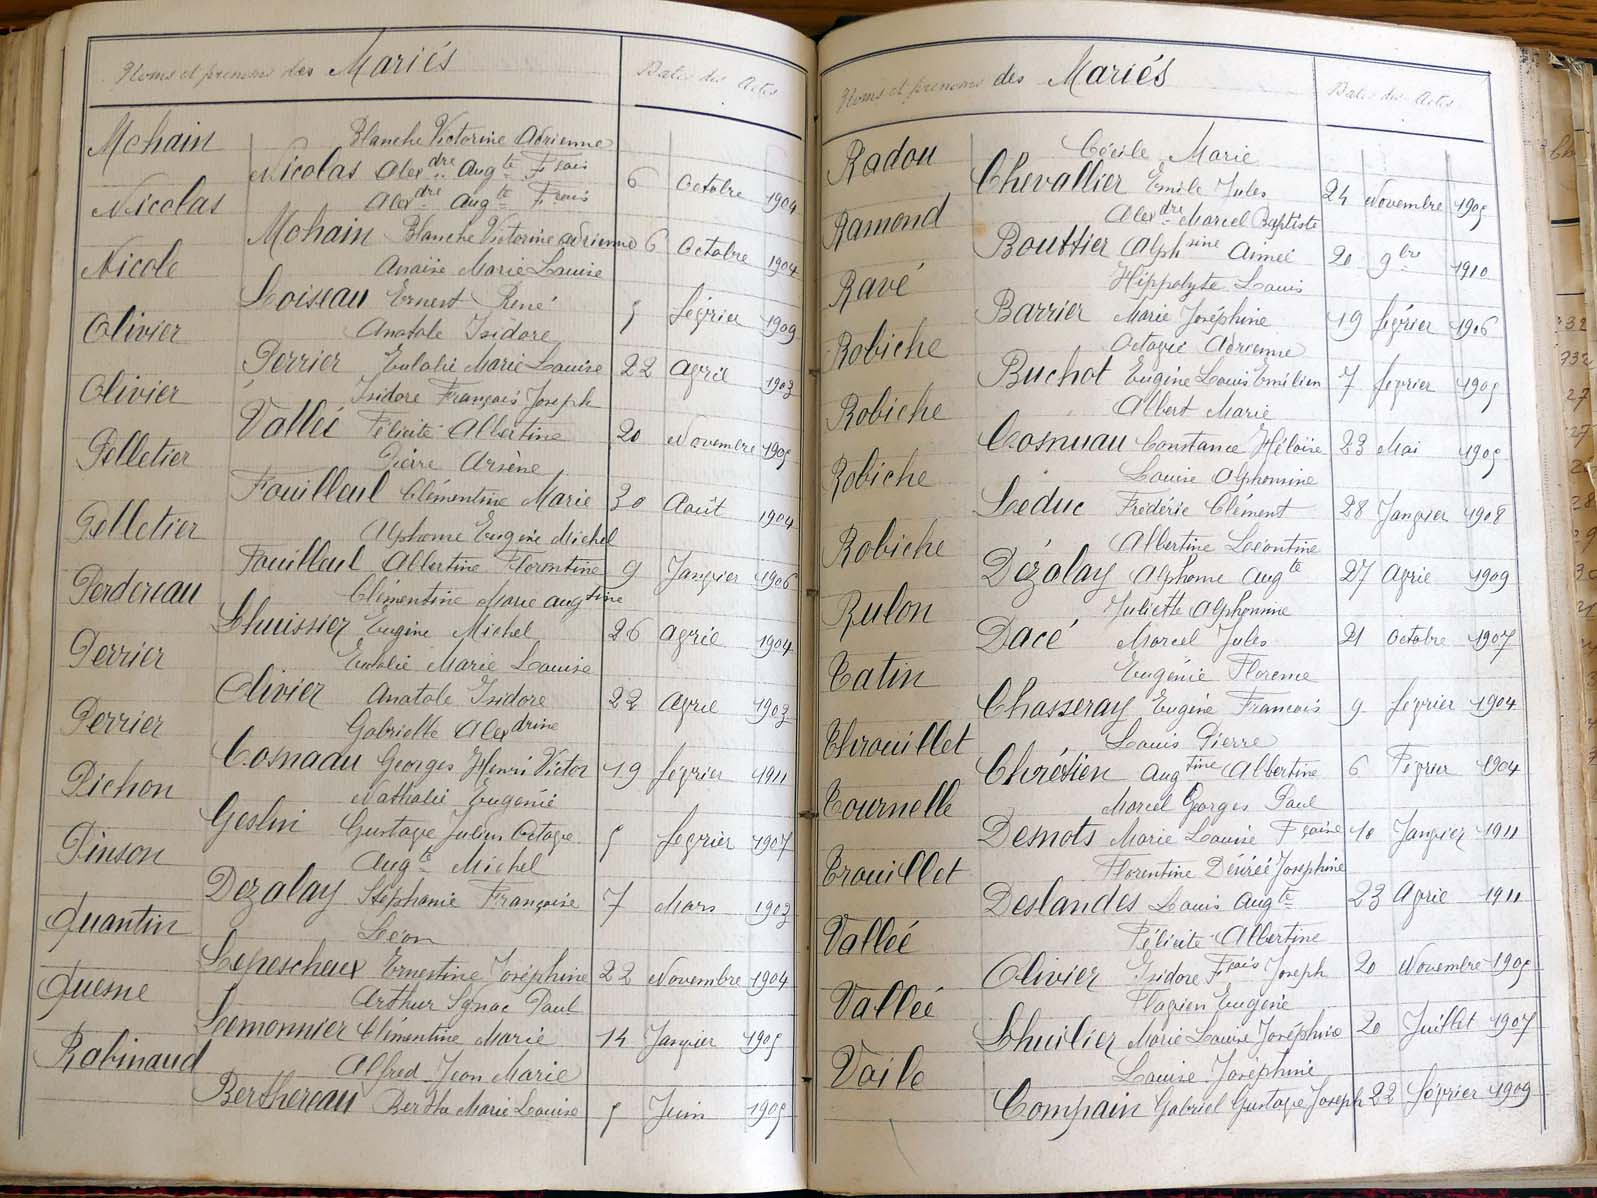 Noms et prénoms des Mariés Dates des Actes
Mohain Blanche Victorine Adrienne
Nicolas Alexdre Augte Fçais 6 Octobre 1904
Nicolas Alexdre Augte Fçais
Mohain Blanche Victorine Adrienne 6 Octobre 1904
Nicole Anaïse Marie Louise
Loiseau Ernest René 5 février 1909
Olivier Anatole Isidore
Perrier Eulalie Marie Louise 22 avril 1903
Olivier Isidore François Joseph
Vallée Félicité Albertine 20 Novembre 1905
Pelletier Pierre Arsène
Fouilleul Clémentine Marie 30 Août 1904
Pelletier Alphonse Eugène Michel
Fouilleul Albertine Florentine 9 Janvier 1906
Perdereau Clémentine Marie Augtine
Lhuissier Eugène Michel 26 avril 1904
Perrier Eulalie Marie Louise
Olivier Anatole Isidore 22 avril 1903
Perrier Gabrielle Alexdrine
Cosnuau Georges Henri Victor 19 février 1911
Pichon Nathalie Eugénie
Geslin Gustave Julien Octave 5 février 1907
Pinson Augte Michel
Dezalay Stéphanie Françoise 7 Mars 1903
Quantin Léon
Lepescheux Ernestine Joséphine 22 Novembre 1904
Quesne Arthur Ignac Paul
Lemonnier Clémentine Marie 14 Janvier 1905
Robinaud Alfred Jean Marie
Berthereau Bertha Marie Louise 5 Juin 1905
Noms et prénoms des Mariés Dates des Actes
Radou Cécile Marie
Chevallier Emile Jules 24 Novembre 1905
Ramond Alexdre Marcel Baptiste
Bouttier Alphsine Aimée 20 9bre 1910
Ravé Hippolyte Louis
Barrier Marie Joséphine 19 février 1906
Robiche Octavie Adrienne
Buchot Eugène Louis Emilien 7 février 1905
Robiche Albert Marie
Cosnuau Constance Héloïse 23 Mai 1905
Robiche Louise Alphonsine
Leduc Frédéric Clément 28 Janvier 1908
Robiche Albertine Léontine
Dézalay Alphonse Augte 27 Avril 1909
Rulon Juliette Alphonsine
Dacé Marcel Jules 21 Octobre 1907
Tatin Eugénie Florence
Chasseray Eugène François 9 février 1904
Throuillet Louis Pierre
Chrétien Augtine Albertine 6 Février 1904
Tournelle Marcel Georges Paul
Desnots Marie Louise Fçoise 10 Janvier 1911
Trouillet Florentine Désirée Joséphine
Deslandes Louis Augte 23 Avril 1911
Vallée Félicité Albertine
Olivier Isidore Fçais Joseph 20 Novembre 1905
Vallée Flavien Eugène
Lhuilier Marie Louise Joséphine 20 Juillet 1907
Voile Louise Joséphine
Compain Gabriel Gustave Joseph 22 février 1909